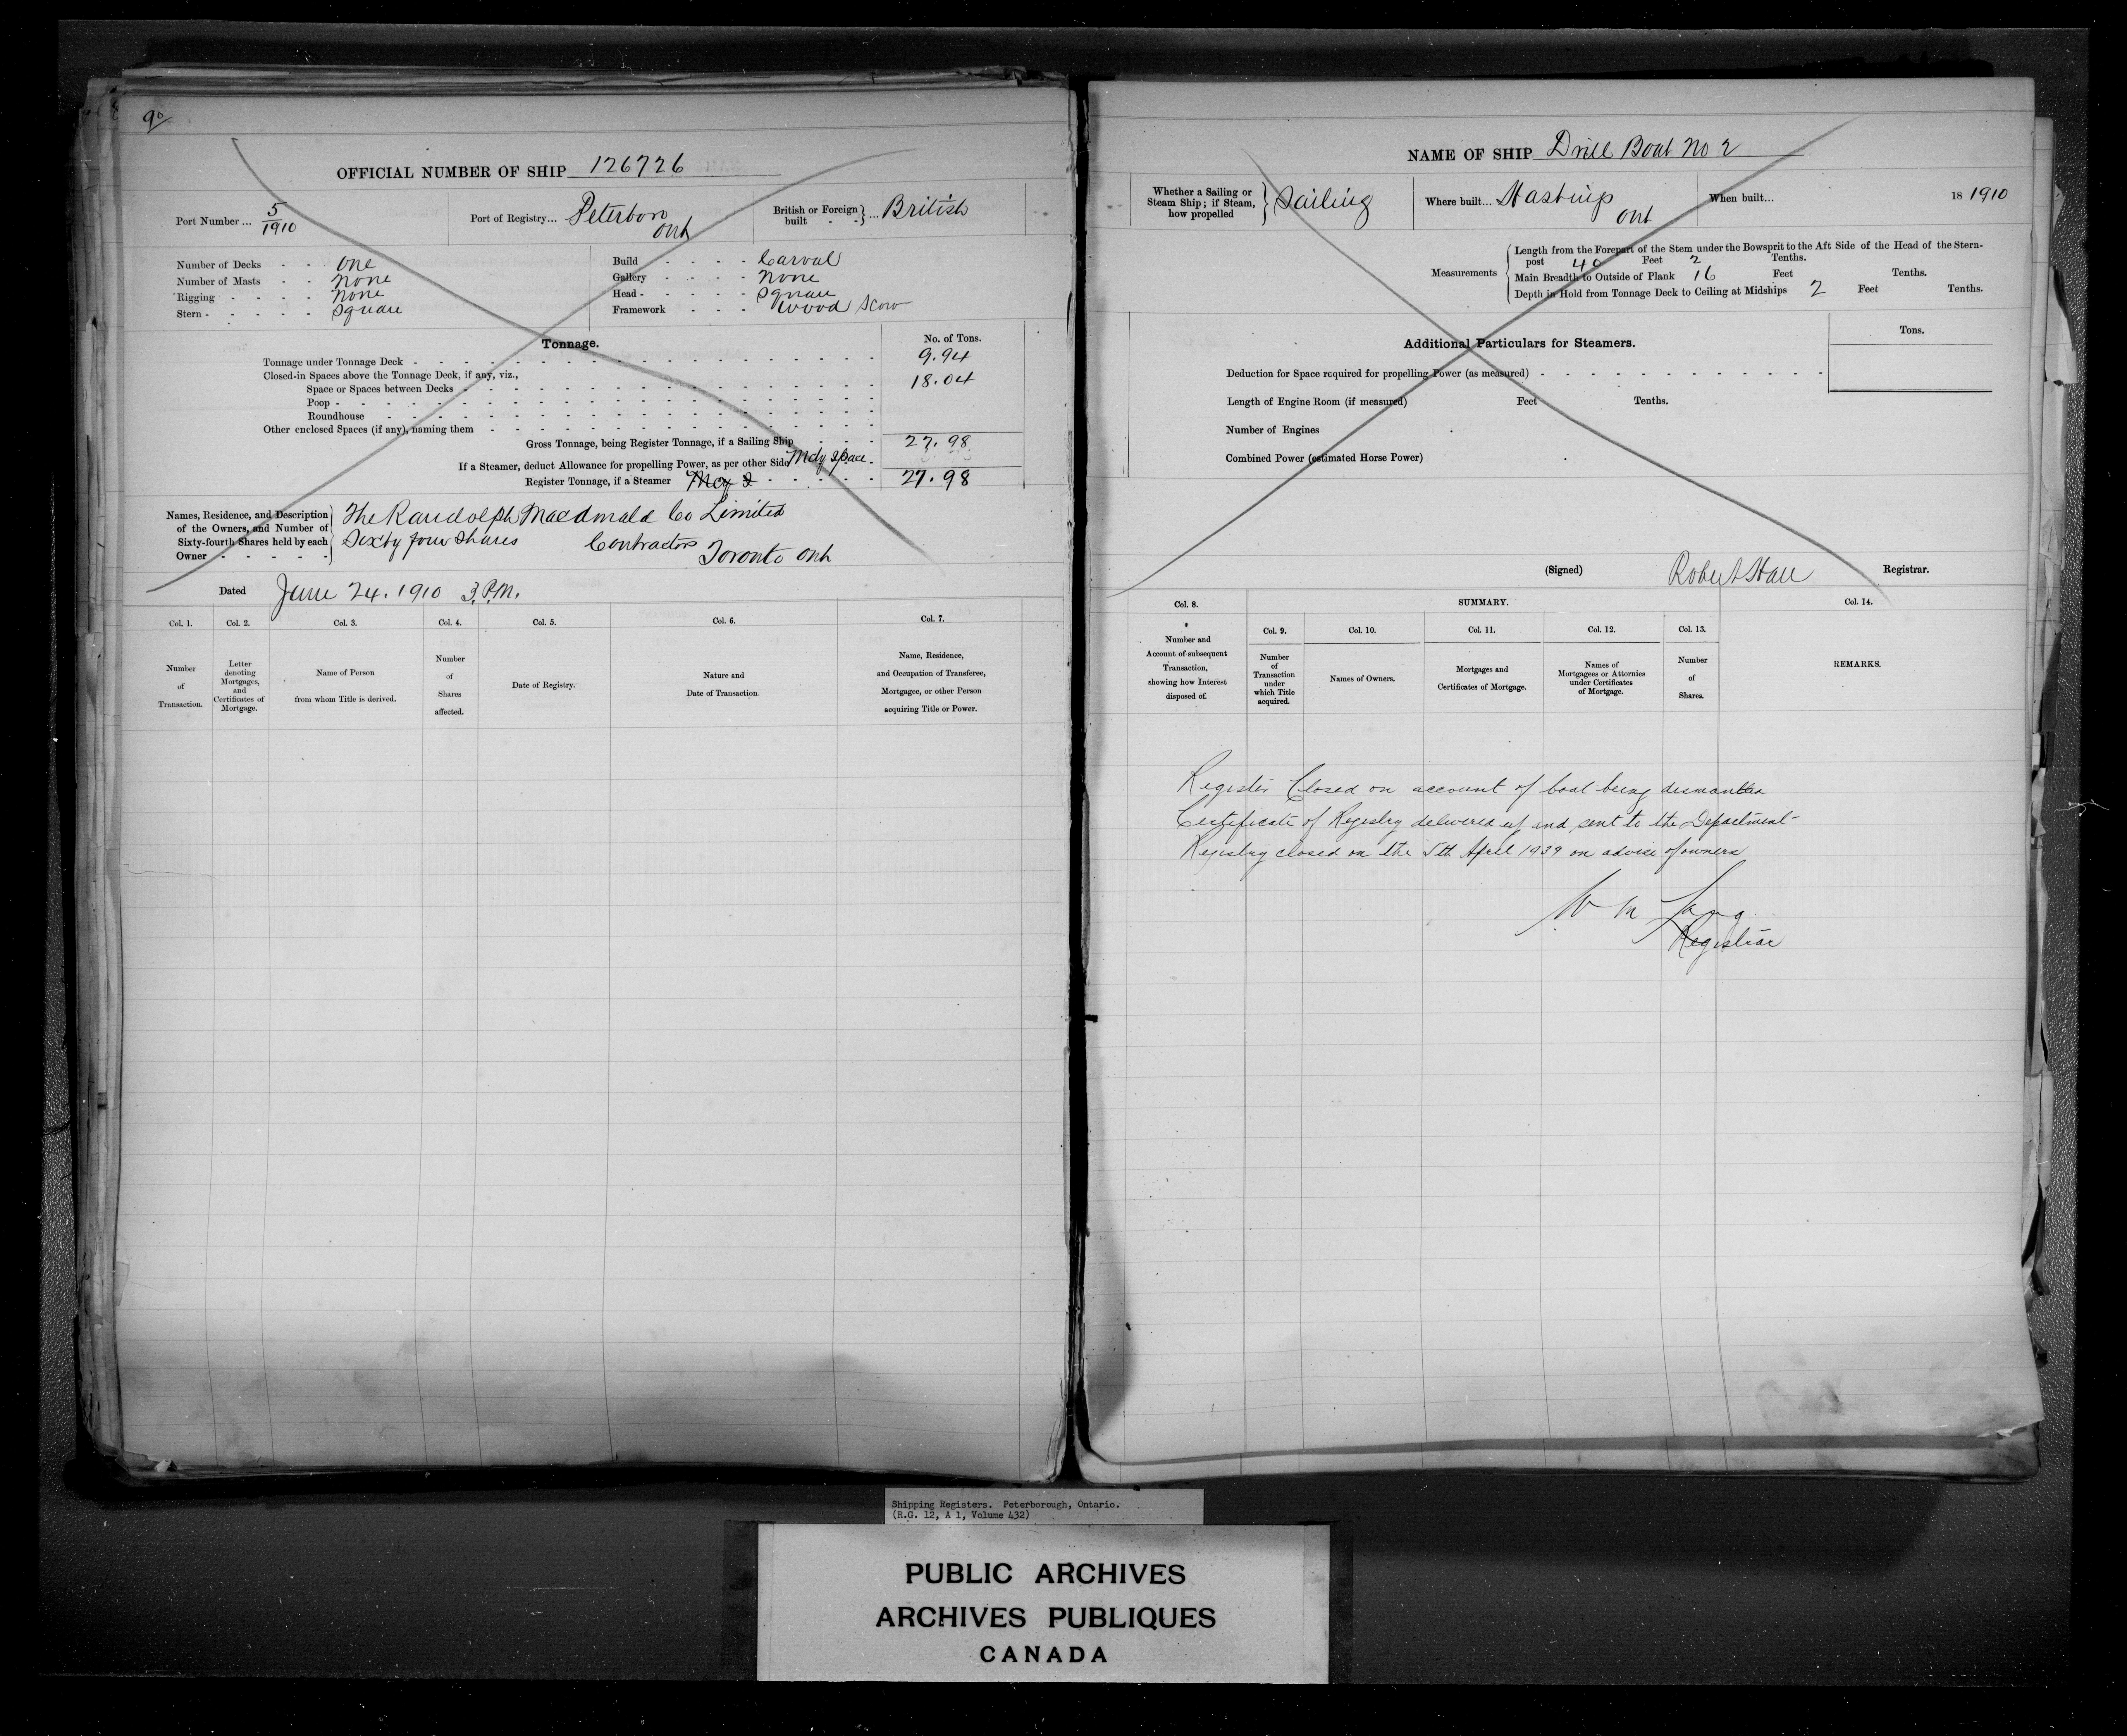 90
OFFICIAL NUMBER OF SHIP 126726
Port Number ... 5/1910
Port of Registry... Peterboro Ont
British or Foreign built - - } ... British
Number of Decks - - one
Number of Masts - - none
Rigging - - - - none
Stern - - - - - square
Build - - - - Carval
Gallery - - - - none
Head - - - - - square
Framework - - - wood scow
Tonnage.
No. of Tons.
Tonnage under Tonnage Deck 9.94
Closed-in Spaces above the Tonnage Deck, if any, viz.,
Space or Spaces between Decks 18.04
Poop
Roundhouse
Other enclosed Spaces (if any), naming them
Gross Tonnage, being Register Tonnage, if a Sailing Ship 27.98
If a Steamer, deduct Allowance for propelling Power, as per other Side space
Register Tonnage, if a Steamer 27.98
Names, Residence, and Description of the Owners, and Number of Sixty-fourth Shares held by each Owner - - - - -
The Randolph Macdonald Co Limited
Sixty four shares Contractors Toronto Ont
Dated June 24. 1910 3 P.M.
Col. 1. Number of Transaction.
Col. 2. Letter denoting Mortgages, and Certificates of Mortgage.
Col. 3. Name of Person from whom Title is derived.
Col. 4. Number of Shares affected.
Col. 5. Date of Registry.
Col. 6. Nature and Date of Transaction.
Col. 7. Name, Residence, and Occupation of Transferee, Mortgagee, or other Person acquiring Title or Power.
NAME OF SHIP Drill Boat No 2
Whether a Sailing or Steam Ship; if Steam, how propelled } Sailing
Where built... Hastings Ont
When built... 18 1910
Measurements
Length from the Forepart of the Stem under the Bowsprit to the Aft Side of the Head of the Stern-
post 40 Feet 2 Tenths.
Main Breadth to Outside of Plank 16 Feet Tenths.
Depth in Hold from Tonnage Deck to Ceiling at Midships 2 Feet Tenths.
Additional Particulars for Steamers.
Tons.
Deduction for Space required for propelling Power (as measured)
Length of Engine Room (if measured) Feet Tenths.
Number of Engines
Combined Power (estimated Horse Power)
(Signed) Robert Hall Registrar.
Col. 8. Number and Account of subsequent Transaction, showing how Interest disposed of.
SUMMARY.
Col. 9. Number of Transaction under which Title acquired.
Col. 10. Names of Owners.
Col. 11. Mortgages and Certificates of Mortgage.
Col. 12. Names of Mortgagees or Attornies under Certificates of Mortgage.
Col. 13. Number of Shares.
Col. 14. REMARKS.
Register Closed on account of boat being dismantled
Certificate of Registry delivered up and sent to the Department-
Registry closed on the 5th April 1939 on advise of owners
W M Lang
Registrar
Shipping Registers. Peterborough, Ontario.
(R.G. 12, A 1, Volume 432)
PUBLIC ARCHIVES
ARCHIVES PUBLIQUES
CANADA